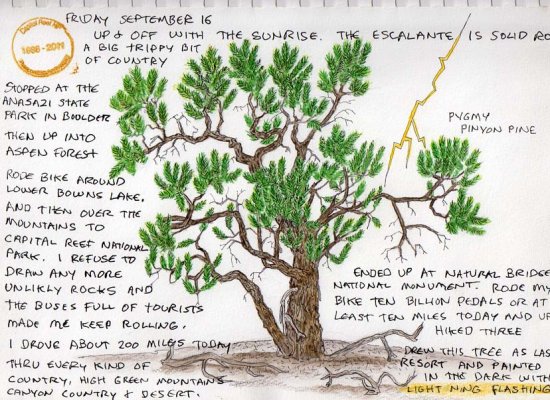 FRIDAY SEPTEMBER 16
UP & OFF WITH THE SUNRISE. THE ESCALANTE IS SOLID RO
A BIG TRIPPY BIT
OF COUNTRY
1986 - 2011
STOPPED AT THE
ANASAZI STATE
PARK IN BOULDER
THEN UP INTO
ASPEN FOREST
RODE BIKE AROUND
LOWER BOWNS LAKE.
AND THEN OVER THE
MOUNTAINS TO
CAPITAL REEF NATIONAL
PARK. I REFUSE TO
DRAW ANY MORE
UNLIKLY ROCKS AND
THE BUSES FULL OF TOURISTS
MADE ME KEEP ROLLING.
I DROVE ABOUT 200 MILES TODAY
THRU EVERY KIND OF
COUNTRY, HIGH GREEN MOUNTAINS
CANYON COUNTRY & DESERT.
PYGMY
PINYON PINE
ENDED UP AT NATURAL BRIDGE
NATIONAL MONUMENT. RODE MY
BIKE TEN BILLION PEDALS OR AT
LEAST TEN MILES TODAY AND UP
HIKED THREE
DREW THIS TREE AS LAS
RESORT AND PAINTED
IN THE DARK WITH
LIGHTNING FLASHING